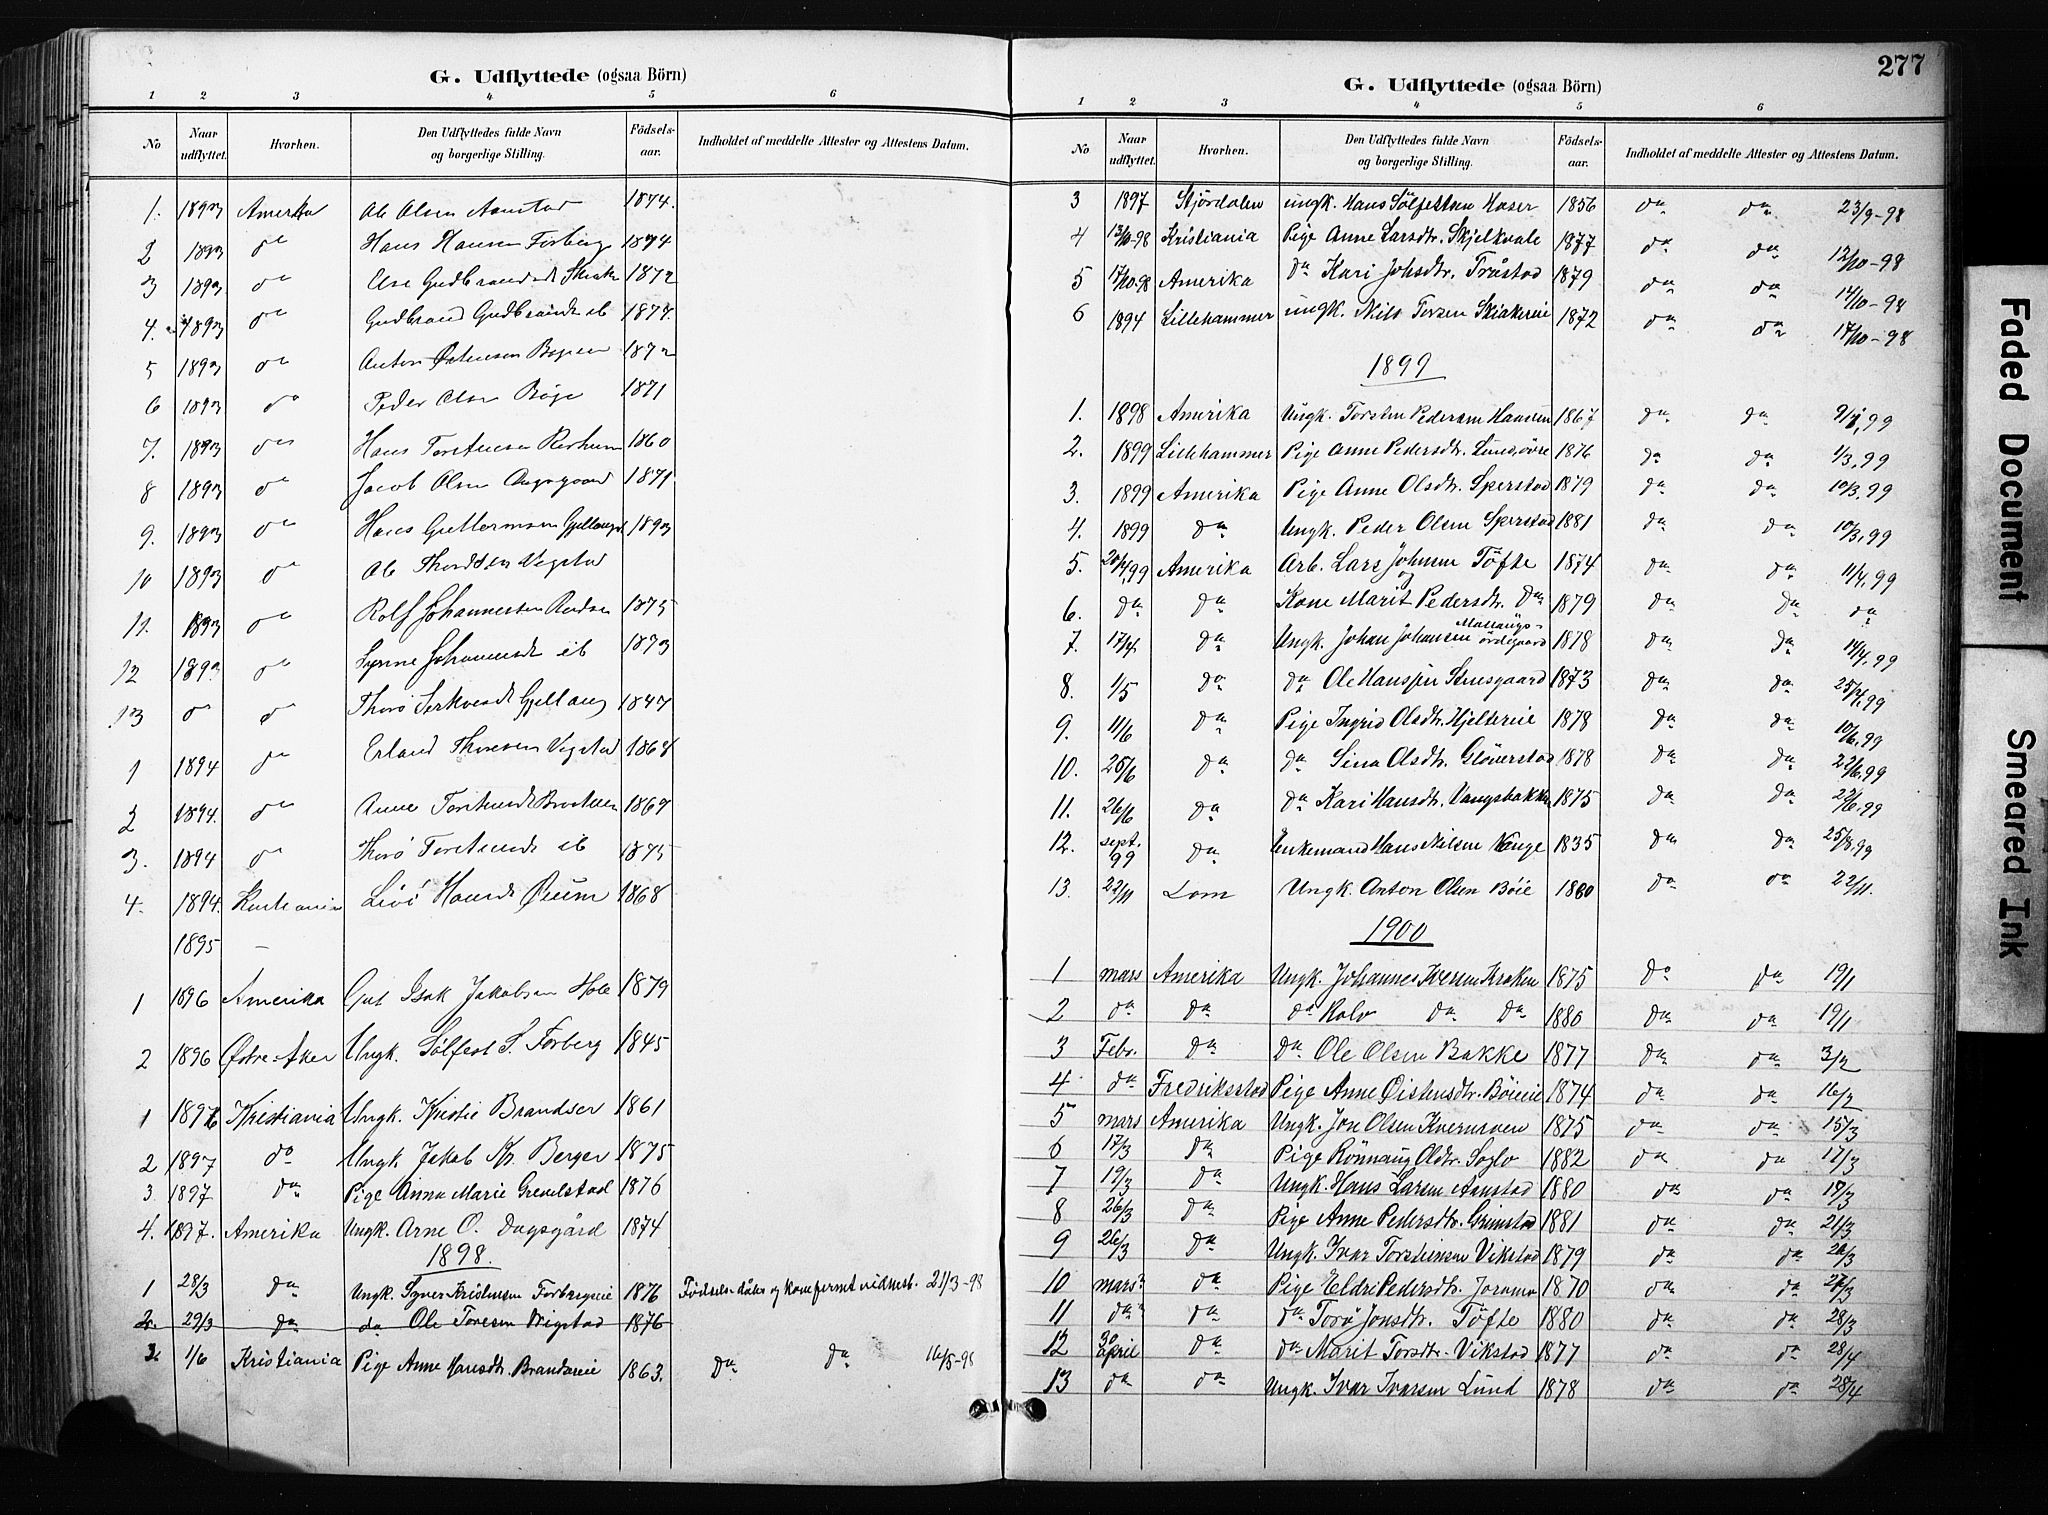 G. Udflyttede (ogsaa Börn)
1 2 3 4 5 6
No Naar udflyttet. Hvorhen. Den Udflyttedes fulde Navn og borgerlige Stilling. Födsels-aar. Indholdet af meddelte Attester og Attestens Datum.
1. 1893 Amerika Ole Olsen Aanstad 1874.
2 1893 do Hans Hansen Forberg 1874
3 1893 do Else Gudbrandsd Skiaker 1872
4. 1893 do Gudbrand Gudbrands ib 1874.
5 1893 do Anton Østensen 1872
6 1893 do Peder Olsen Böye 1871
7. 1893 do Hans Torstensen 1860
8 1893 do Jacob Olsen Dagsgaard 1871
9. 1893 do Hans Guttormsen 1893
10 1893 do Ole Vigstad
11. 1893 do Rolf Johannessen 1875
12 1893 do Synne ib 1873
13 do do Thorö 1847
1 1894 do Erland Thoresen Vigstad 1864
2 1894. do Anne 1869
3. 1894 do Thorö ib 1875
4. 1894. Kristiania Livö Hansd Øium 1868
1895 –
1 1896 Amerika Gut Isak Jakobsen Hole 1879
2 1896 Østre-Aker Ungk. Sölfest S. Forberg 1845
1 1897 Kristiania Ungk. Kristie Brandser 1861
2 1897 do Ungk Jakob Kr. Berger 1875
3. 1897 da Pige Anna Marie Grevelstad 1876
4. 1897. Amerika Ungk. Arne O. Dagsgård 1874
1898.
1 28/3 da Ungk. Syver Kristensen Forbergseie 1876 Födsels- dåbs og konfirmt vidnesb. 21/3-98
2. 29/3 da da Ole Toresen Vigstad 1876
2. 1/6 Kristiania Pige Anne Hansdtr. Brandsreie 1863. Da Da 16/5-98
277
G. Udflyttede (ogsaa Börn)
1 2 3 4 5 6
No Naar udflyttet. Hvorhen. Den Udflyttedes fulde Navn og borgerlige Stilling. Födsels-aar. Indholdet af meddelte Attester og Attestens Datum.
3 1897 Stjördalen ungk. Hans Sölfestsen Moser 1856 da da 23/9-98
4 13/10-98 Kristiania Pige Anne Larsdtr. Skjelkvale 1877 da da 12/10-98
5 17/10-98 Amerika da Kari Johsdtr. Tråstad 1879 da da 14/10-98
6 1894 Lillehammer ungk. Nils Torsen Skiakereie 1872 da da 17/10-98
1899
1. 1898 Amerika Ungk. Torsten Pedersen Hansen 1867 da da 9/1,99
2. 1899 Lillehammer Pige Anne Pedersdtr. Lundsöre 1876 da da 1/3,99
3. 1899 Amerika Pige Anne Olsdtr. Sperstad 1879 da da 10/3,99
4. 1899 da Ungk. Peder Olsen Sperstad 1881 da da 10/3,99
5. 20/4,99 Amerika Arb. Lars Johnsen Töfte 1874 da da 11/4,99
og
6. da da Kone Marit Pedersdtr. Da 1879 da da da
7. 17/4 da Ungk. Johan Johansen ördegaard 1878 da da 14/4,99
8. 1/5 da da Ole Hansen Stuesgaard 1873 da da 25/4,99
9. 11/6 da Pige Ingrid Olsdtr. Hjeltereie 1878 da da 10/6,99
10. 25/6 da da Sina Olsdtr. Glöverstad 1878 da da 22/6,99
11. 26/6 da da Kari Hansdtr. Vangsbakken 1875 da da 22/6,99
12. sept. 99 da Enkemand Hans Nilsen Vange 1835 da da 25/8,99
13. 22/11 Lom Ungk. Anton Olsen Böie 1880 da da 22/11.
1900
1 mars Amerika Ungk. Johannes Iversen Kroken 1875 do da 19/1
2 da da da Rolv da da 1880 da da 19/1
3 Febr. da da Ole Olsen Bakke 1877 da da 3/2
4 da Fredriksstad Pige Anne Öistensdtr. Böieeie 1874 da da 16/2
5 mars Amerika Ungk. Jon Olsen Kvernroen 1875 da da 15/3
6 17/3 da Pige Rönnaug Oldtr. Soglo 1882 da da 17/3
7 19/3 da Ungk. Hans Larsen Aanstad 1880 da da 19/3
8 26/3 da Pige Anne Pedersdtr. Grimstad 1881 da da 21/3
9 26/3 da Ungk. Ivar Torsteinsen Vikstad 1879 da da 26/3
10 mars? da Pige Eldri Pedersdtr. Joramo 1870 da da 27/3
11 da? da da Torö Jonsdtr. Töfte 1880 da da 28/3
12 30 april da da Marit Torsdtr. Vikstad 1877 da da 28/4
13 da da Ungk. Ivar Ivarsen Lund 1878 da da 28/4
Faded Document
Smeared Ink